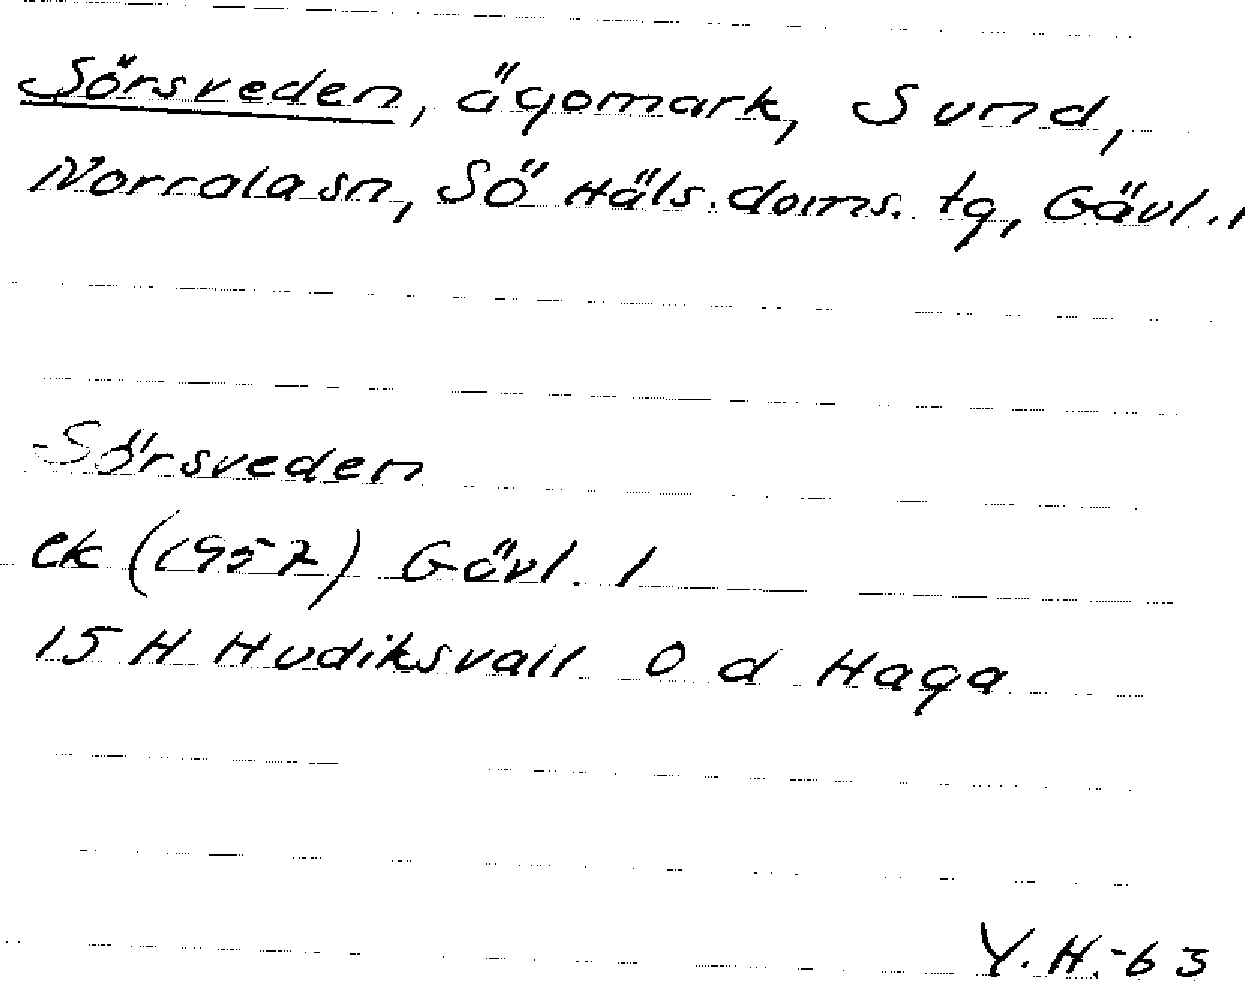 Sörsveden, ägomark, Sund,
Norrala sn, Sö Häls. doms. tg, Gävl. l
Sörsveden
ek (1957) Gävl. l
15 H Hudiksvall 0 d Haga
Y.H.-63